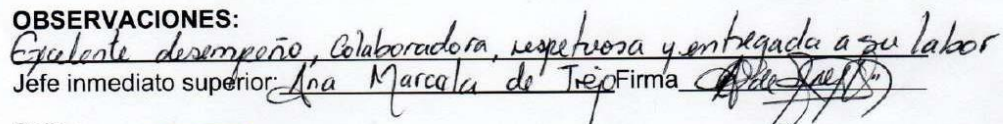 OBSERVACIONES:
Excelente desempeño, Colaboradora, respetuosa y entregada a su labor
Jefe inmediato superior: Ana Marcela de Trejo Firma